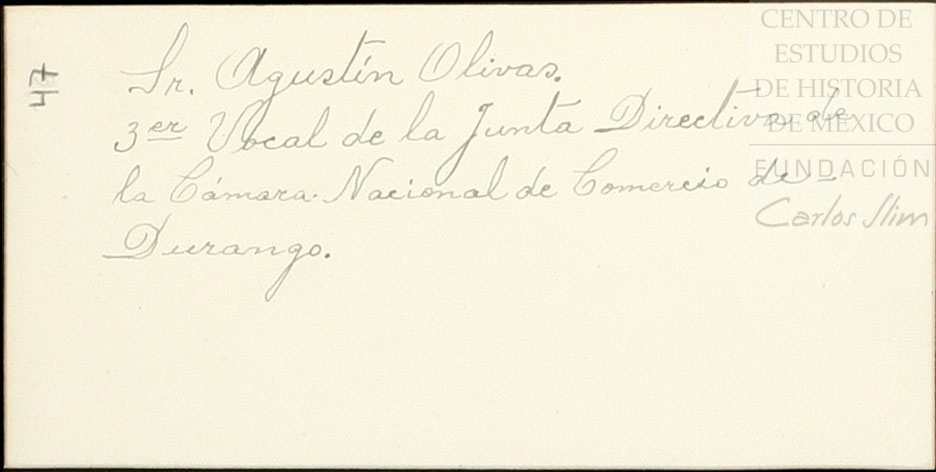 47
Sr. Agustín Olivas.
3er Vocal de la Junta Directiva de
la Cámara Nacional de Comercio de
Durango.
CENTRO DE
ESTUDIOS
DE HISTORIA
DE MÉXICO
FUNDACIÓN
Carlos Slim